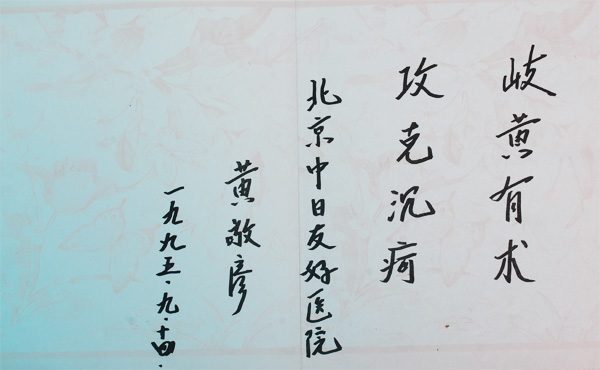 歧黄有术
攻克沉疴
北京中日友好医院
黄敬彦
一九九五.九.十四.